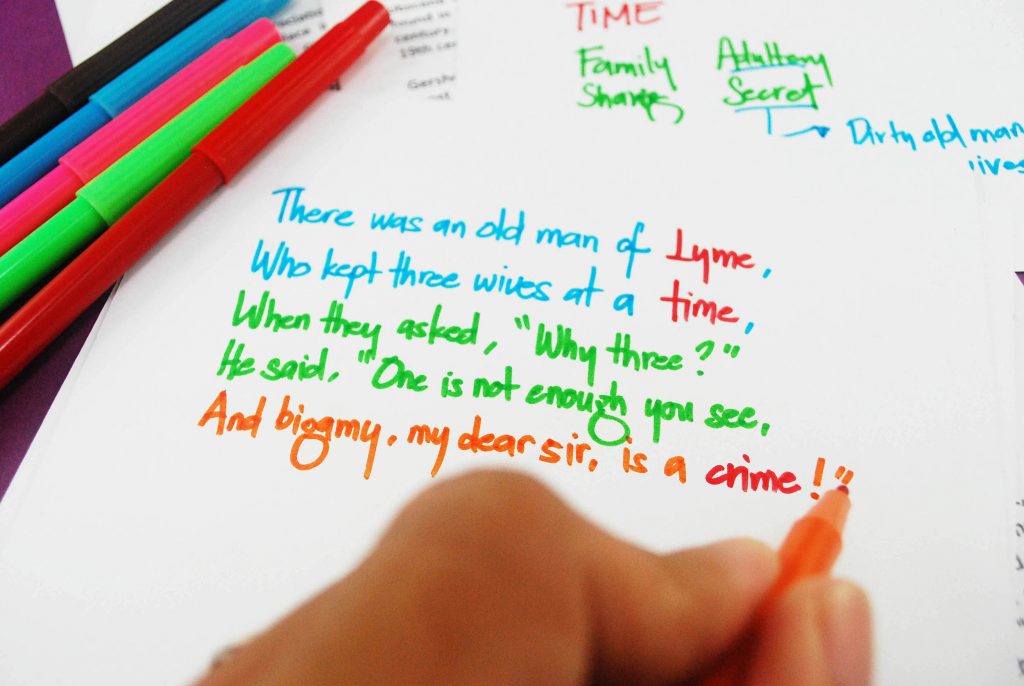 century
19th cen
Gersh
TIME
Family Adultery
Secret
Dirty old man
lives
There was an old man of Lyme,
Who kept three wives at a time,
When they asked, "Why three?"
He said, "One is not enough you see,
And biggmy, my dear sir, is a crime!"